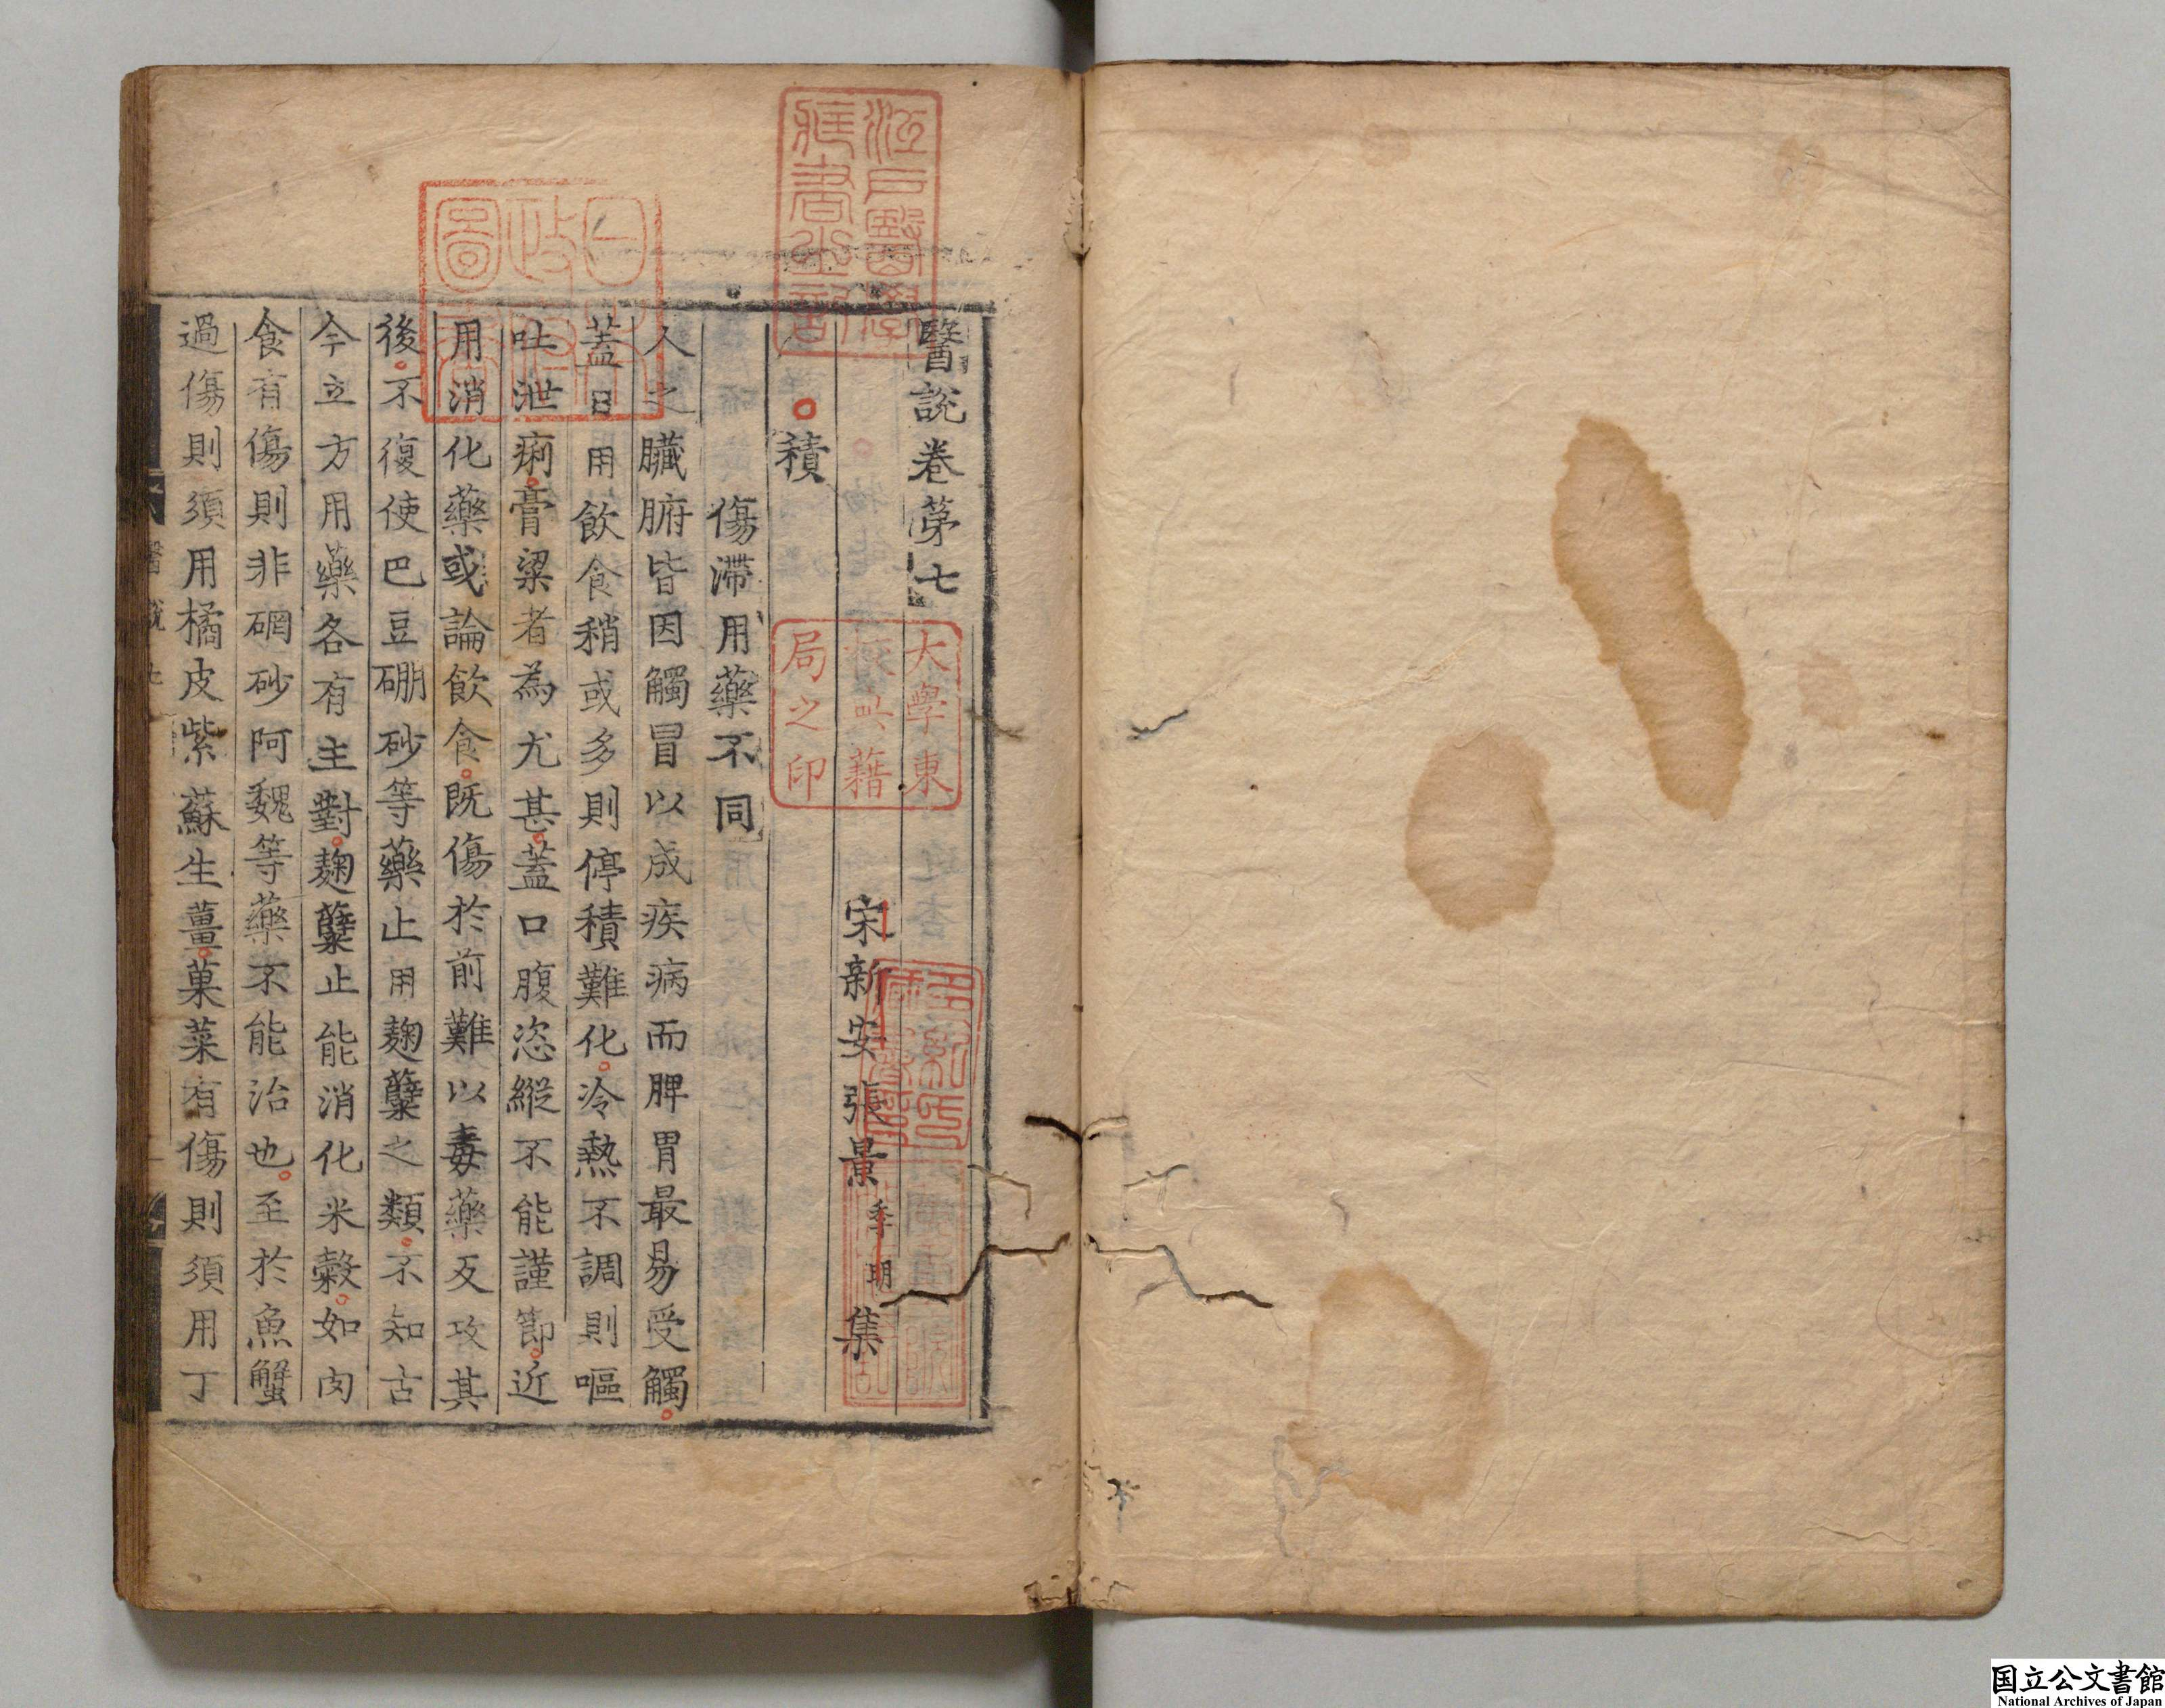 醫說卷第七
宋新安張景季明集
積
傷滯用藥不同
人之臟腑皆因觸冒以成疾病而脾胃最易受觸
蓋日用飲食稍或多則停積難化冷熱不調則嘔
吐泄痢膏粱者為尤甚蓋口腹恣縱不能謹節近
用消化藥或論飲食既傷於前難以毒藥反攻其
後不復使巴豆硼砂等藥止用麹糵之類不知古
今立方用藥各有主對麹糵止能消化米糓如肉
食有傷則非硇砂阿魏等藥不能治也至於魚蟹
過傷則須用橘皮紫蘇生薑菓菜有傷則須用丁
江戶醫學
藏書之記
日本
政府
圖書
大學東
校典籍
局之印
国立公文書館
National Archives of Japan